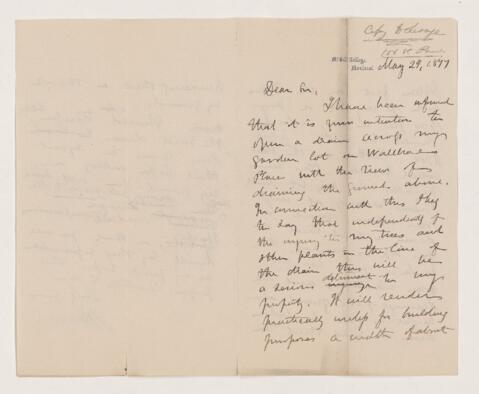 Copy to George
108 St
McGill College,
Montreal May 29, 1877
Dear Sir,
I have been informed
that it is your intention to
open a drain across my
garden lot on
Place with the view of
draining the grounds above.
In connection with this I beg
to say that independently of
the injury to my trees and
other plants in the line of
the drain this will be
a serious detriment to my
property. It will render
practically useless for building
purposes a width of about